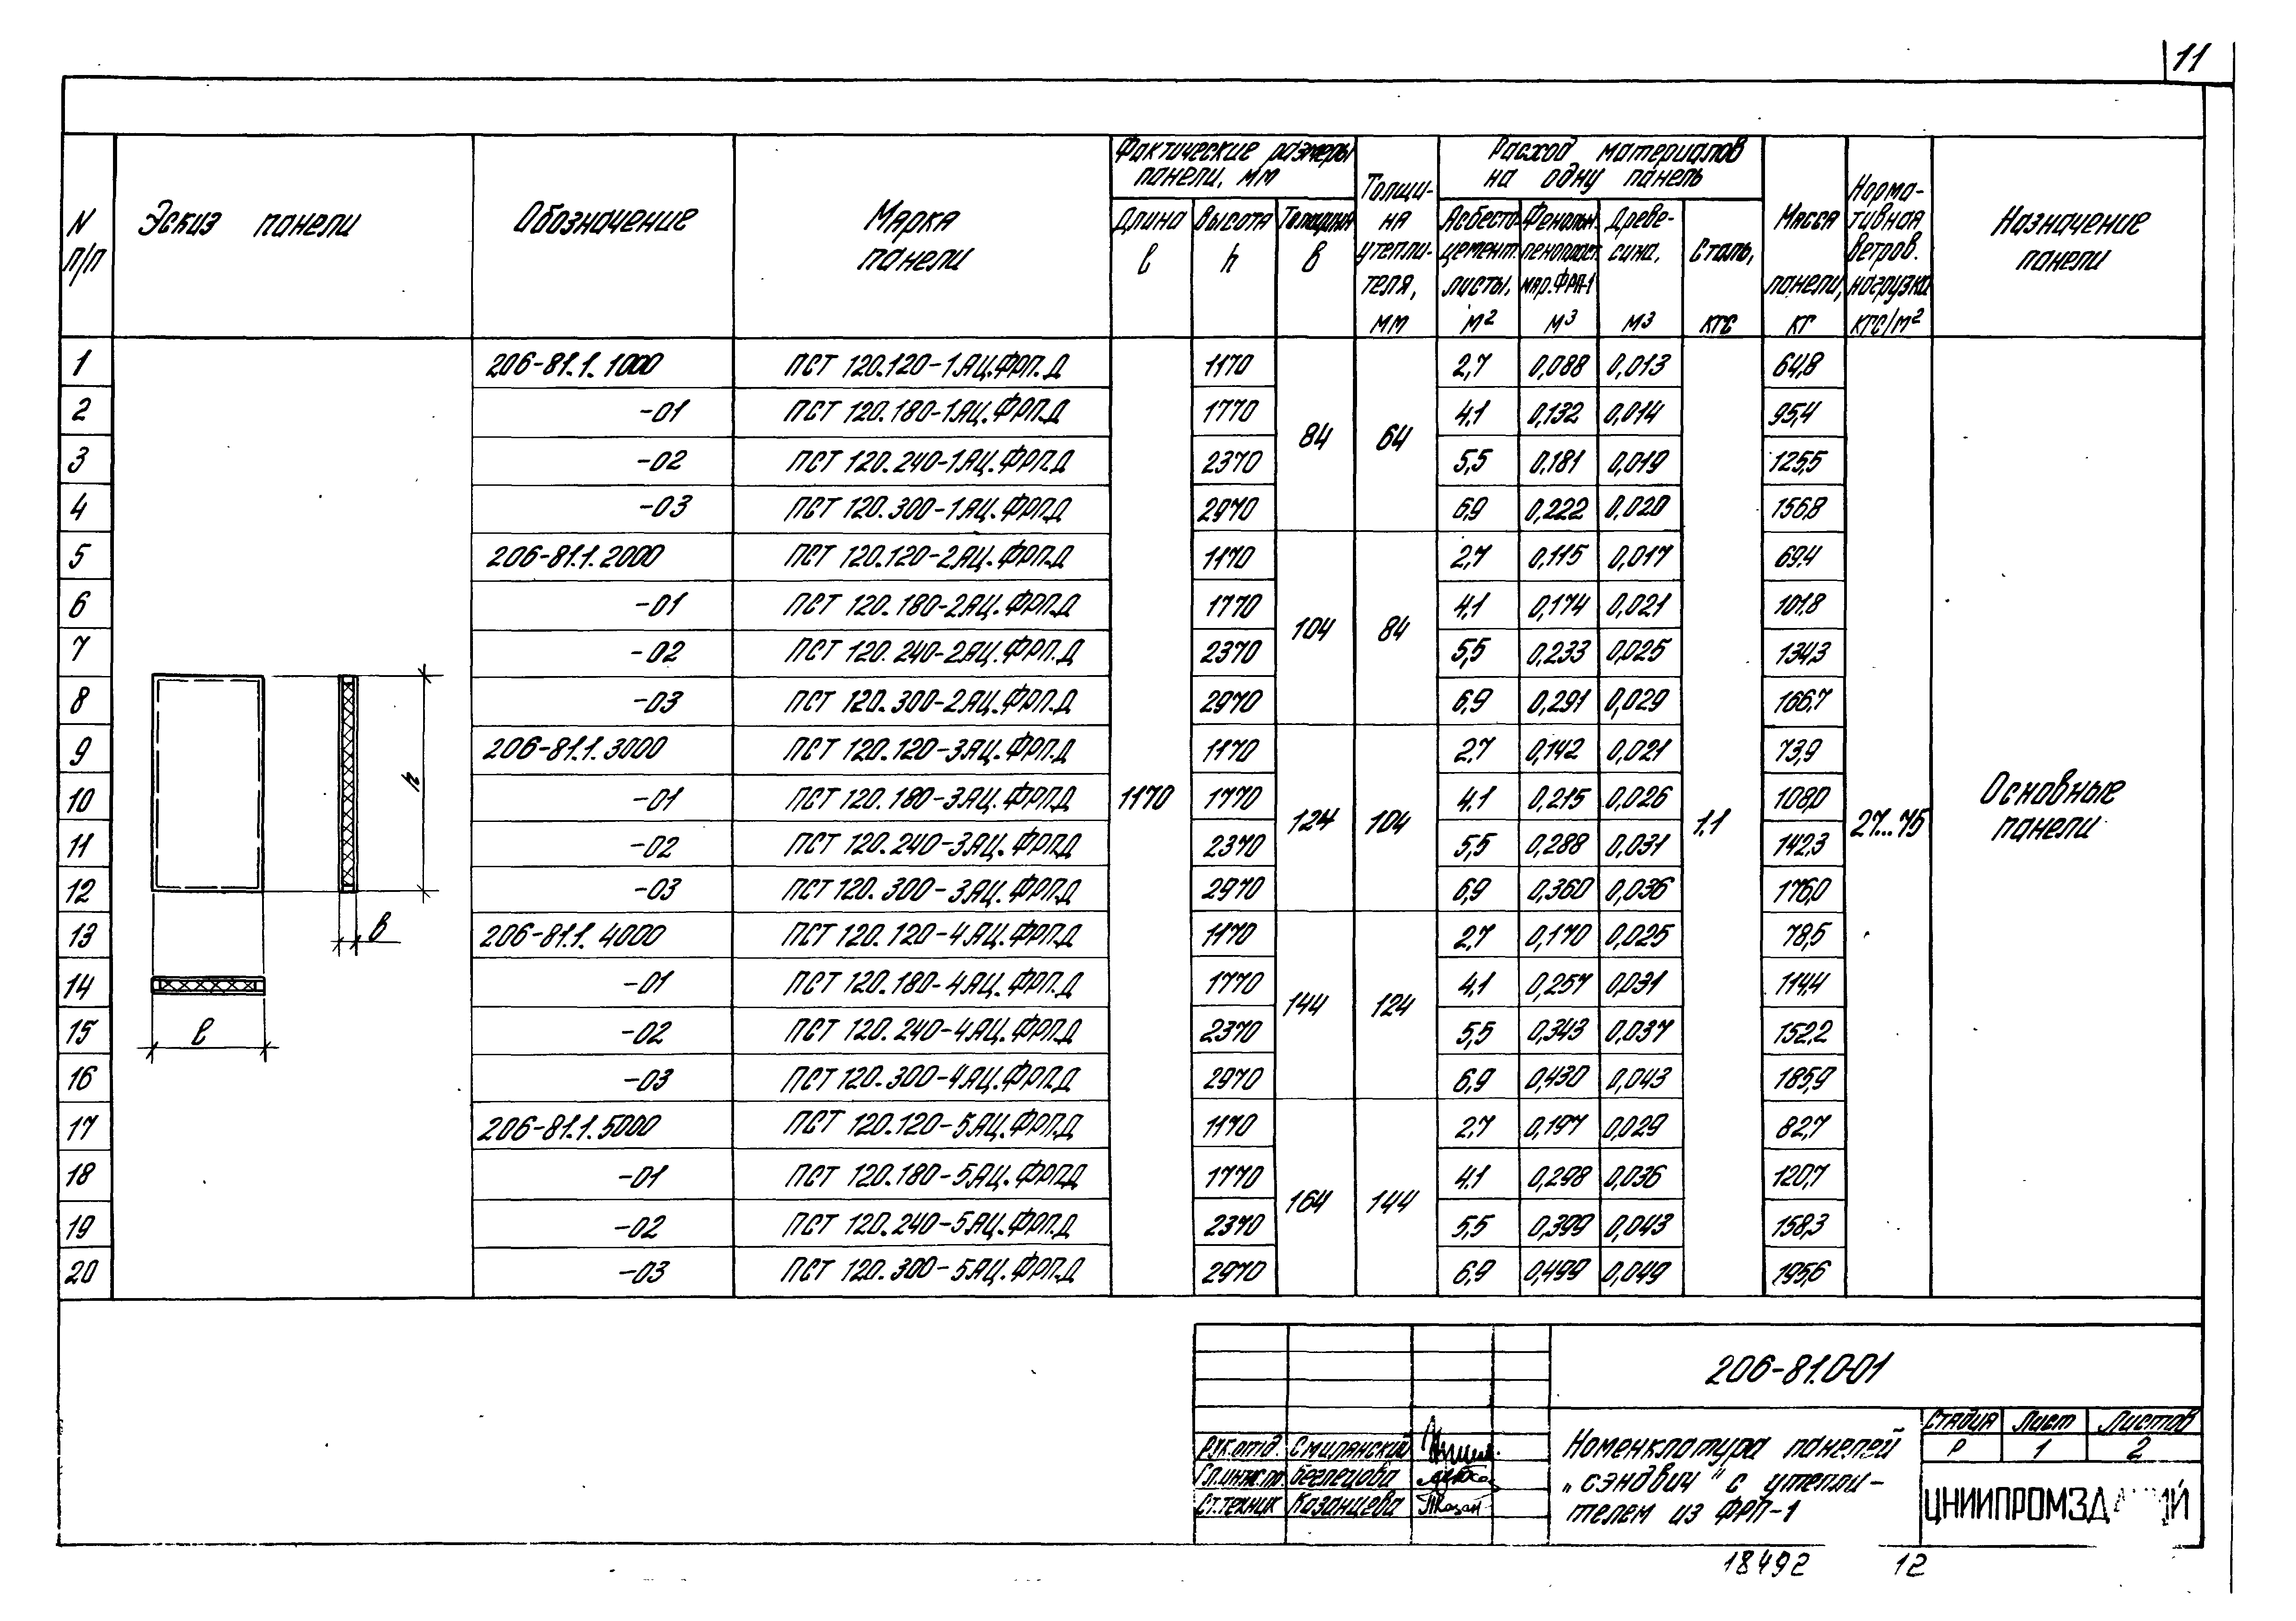 11
N п/п
Эскиз панели
Обозначение
Марка панели
Фактические размеры панели, мм
Длина l
Высота h
Толщина в
Толщи-на утепли-теля, мм
Расход материалов на одну панель
Асбесто-цемент. листы, м2
Фенольн. пенопласт мар. ФРП-1 м3
Древе-сина, м3
Сталь, кгс
Масса панели, кг
Норма-тивная ветров. нагрузка кгс/м2
Назначение панели
1 206-81.1.1000 ПСТ 120.120-1.АЦ.ФРП.Д 1170 2,7 0,088 0,013 64,8
2 -01 ПСТ 120.180-1.АЦ.ФРП.Д 1770 4,1 0,132 0,014 95,4
84 64
3 -02 ПСТ 120.240-1.АЦ.ФРП.Д 2370 5,5 0,181 0,019 125,5
4 -03 ПСТ 120.300-1.АЦ.ФРП.Д 2970 6,9 0,222 0,020 156,8
5 206-81.1.2000 ПСТ 120.120-2.АЦ.ФРП.Д 1170 2,7 0,115 0,017 69,4
6 -01 ПСТ 120.180-2.АЦ.ФРП.Д 1770 4,1 0,174 0,021 101,8
104 84
7 -02 ПСТ 120.240-2.АЦ.ФРП.Д 2370 5,5 0,233 0,025 134,3
8 -03 ПСТ 120.300-2.АЦ.ФРП.Д 2970 6,9 0,291 0,029 166,7
9 206-81.1.3000 ПСТ 120.120-3.АЦ.ФРП.Д 1170 2,7 0,142 0,021 73,9
h
10 -01 ПСТ 120.180-3.АЦ.ФРП.Д 1170 1770 4,1 0,215 0,026 108,0
124 104 1,1 27...75 Основные панели
11 -02 ПСТ 120.240-3.АЦ.ФРП.Д 2370 5,5 0,288 0,031 142,3
12 -03 ПСТ 120.300-3.АЦ.ФРП.Д 2970 6,9 0,360 0,036 176,0
13 в 206-81.1.4000 ПСТ 120.120-4.АЦ.ФРП.Д 1170 2,7 0,170 0,025 78,5
14 -01 ПСТ 120.180-4.АЦ.ФРП.Д 1770 4,1 0,257 0,031 114,4
144 124
15 l -02 ПСТ 120.240-4.АЦ.ФРП.Д 2370 5,5 0,343 0,037 152,2
16 -03 ПСТ 120.300-4.АЦ.ФРП.Д 2970 6,9 0,430 0,043 185,9
17 206-81.1.5000 ПСТ 120.120-5.АЦ.ФРП.Д 1170 2,7 0,197 0,029 82,7
18 -01 ПСТ 120.180-5.АЦ.ФРП.Д 1770 4,1 0,298 0,036 120,7
164 144
19 -02 ПСТ 120.240-5.АЦ.ФРП.Д 2370 5,5 0,399 0,043 158,3
20 -03 ПСТ 120.300-5.АЦ.ФРП.Д 2970 6,9 0,499 0,049 195,6
206-81.0-01
Рук.отд. Смилянский
Гл.инж.пр.
Ст.техник Казанцева
Номенклатура панелей
„сэндвич" с утепли-
телем из ФРП-1
Стадия Лист Листов
Р 1 2
ЦНИИПРОМЗДАНИЙ
18492 12